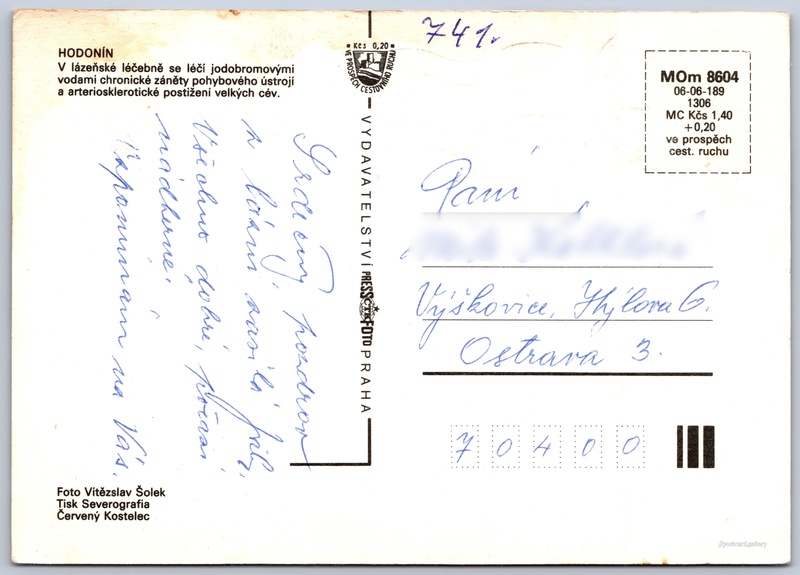 741.
HODONÍN
V lázeňské léčebně se léčí jodobromovými
vodami chronické záněty pohybového ústrojí
a arteriosklerotické postižení velkých cév.
Kčs 0,20
VE PROSPĚCH CESTOVNÍHO RUCHU
MOm 8604
06-06-189
1306
MC Kčs 1,40
+0,20
ve prospěch
cest. ruchu
VYDAVATELSTVÍ PRESSFOTO PRAHA
ČTK
Srdečný pozdrav
z lázní zasílá
Všechno dobré, počasí
nádherné.
Vzpomínám na Vás.
Paní
Výškovice, Hýlova 6.
Ostrava 3.
70400
Foto Vítězslav Šolek
Tisk Severografia
Červený Kostelec